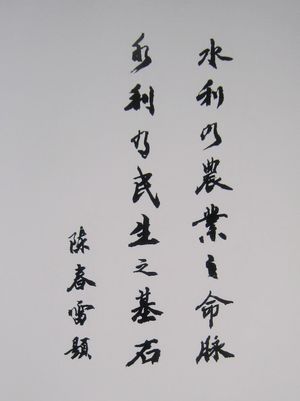 水利乃農業之命脈
水利为民生之基石
陳春雷題